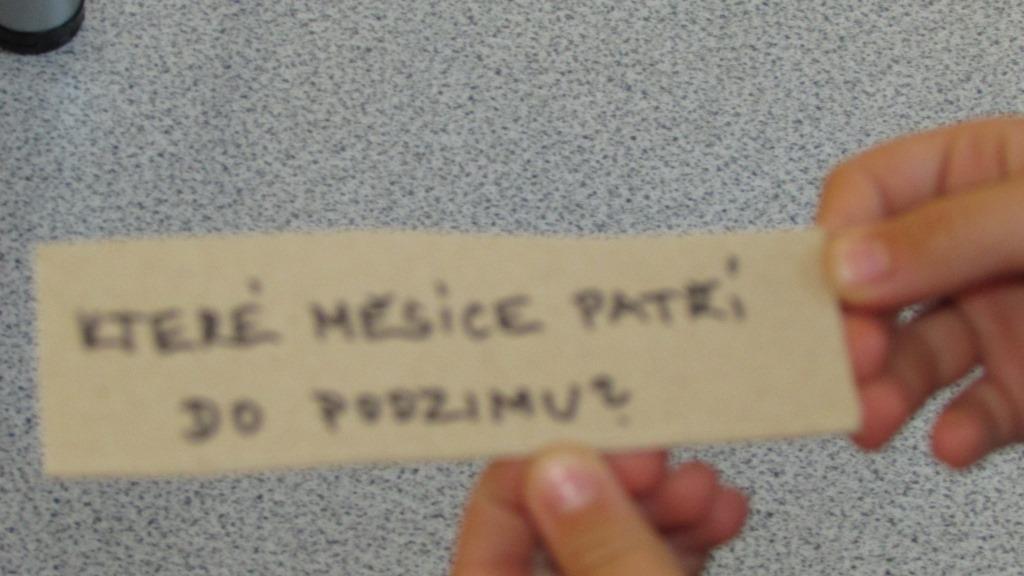 KTERÉ MĚSÍCE PATŘÍ
DO PODZIMU?